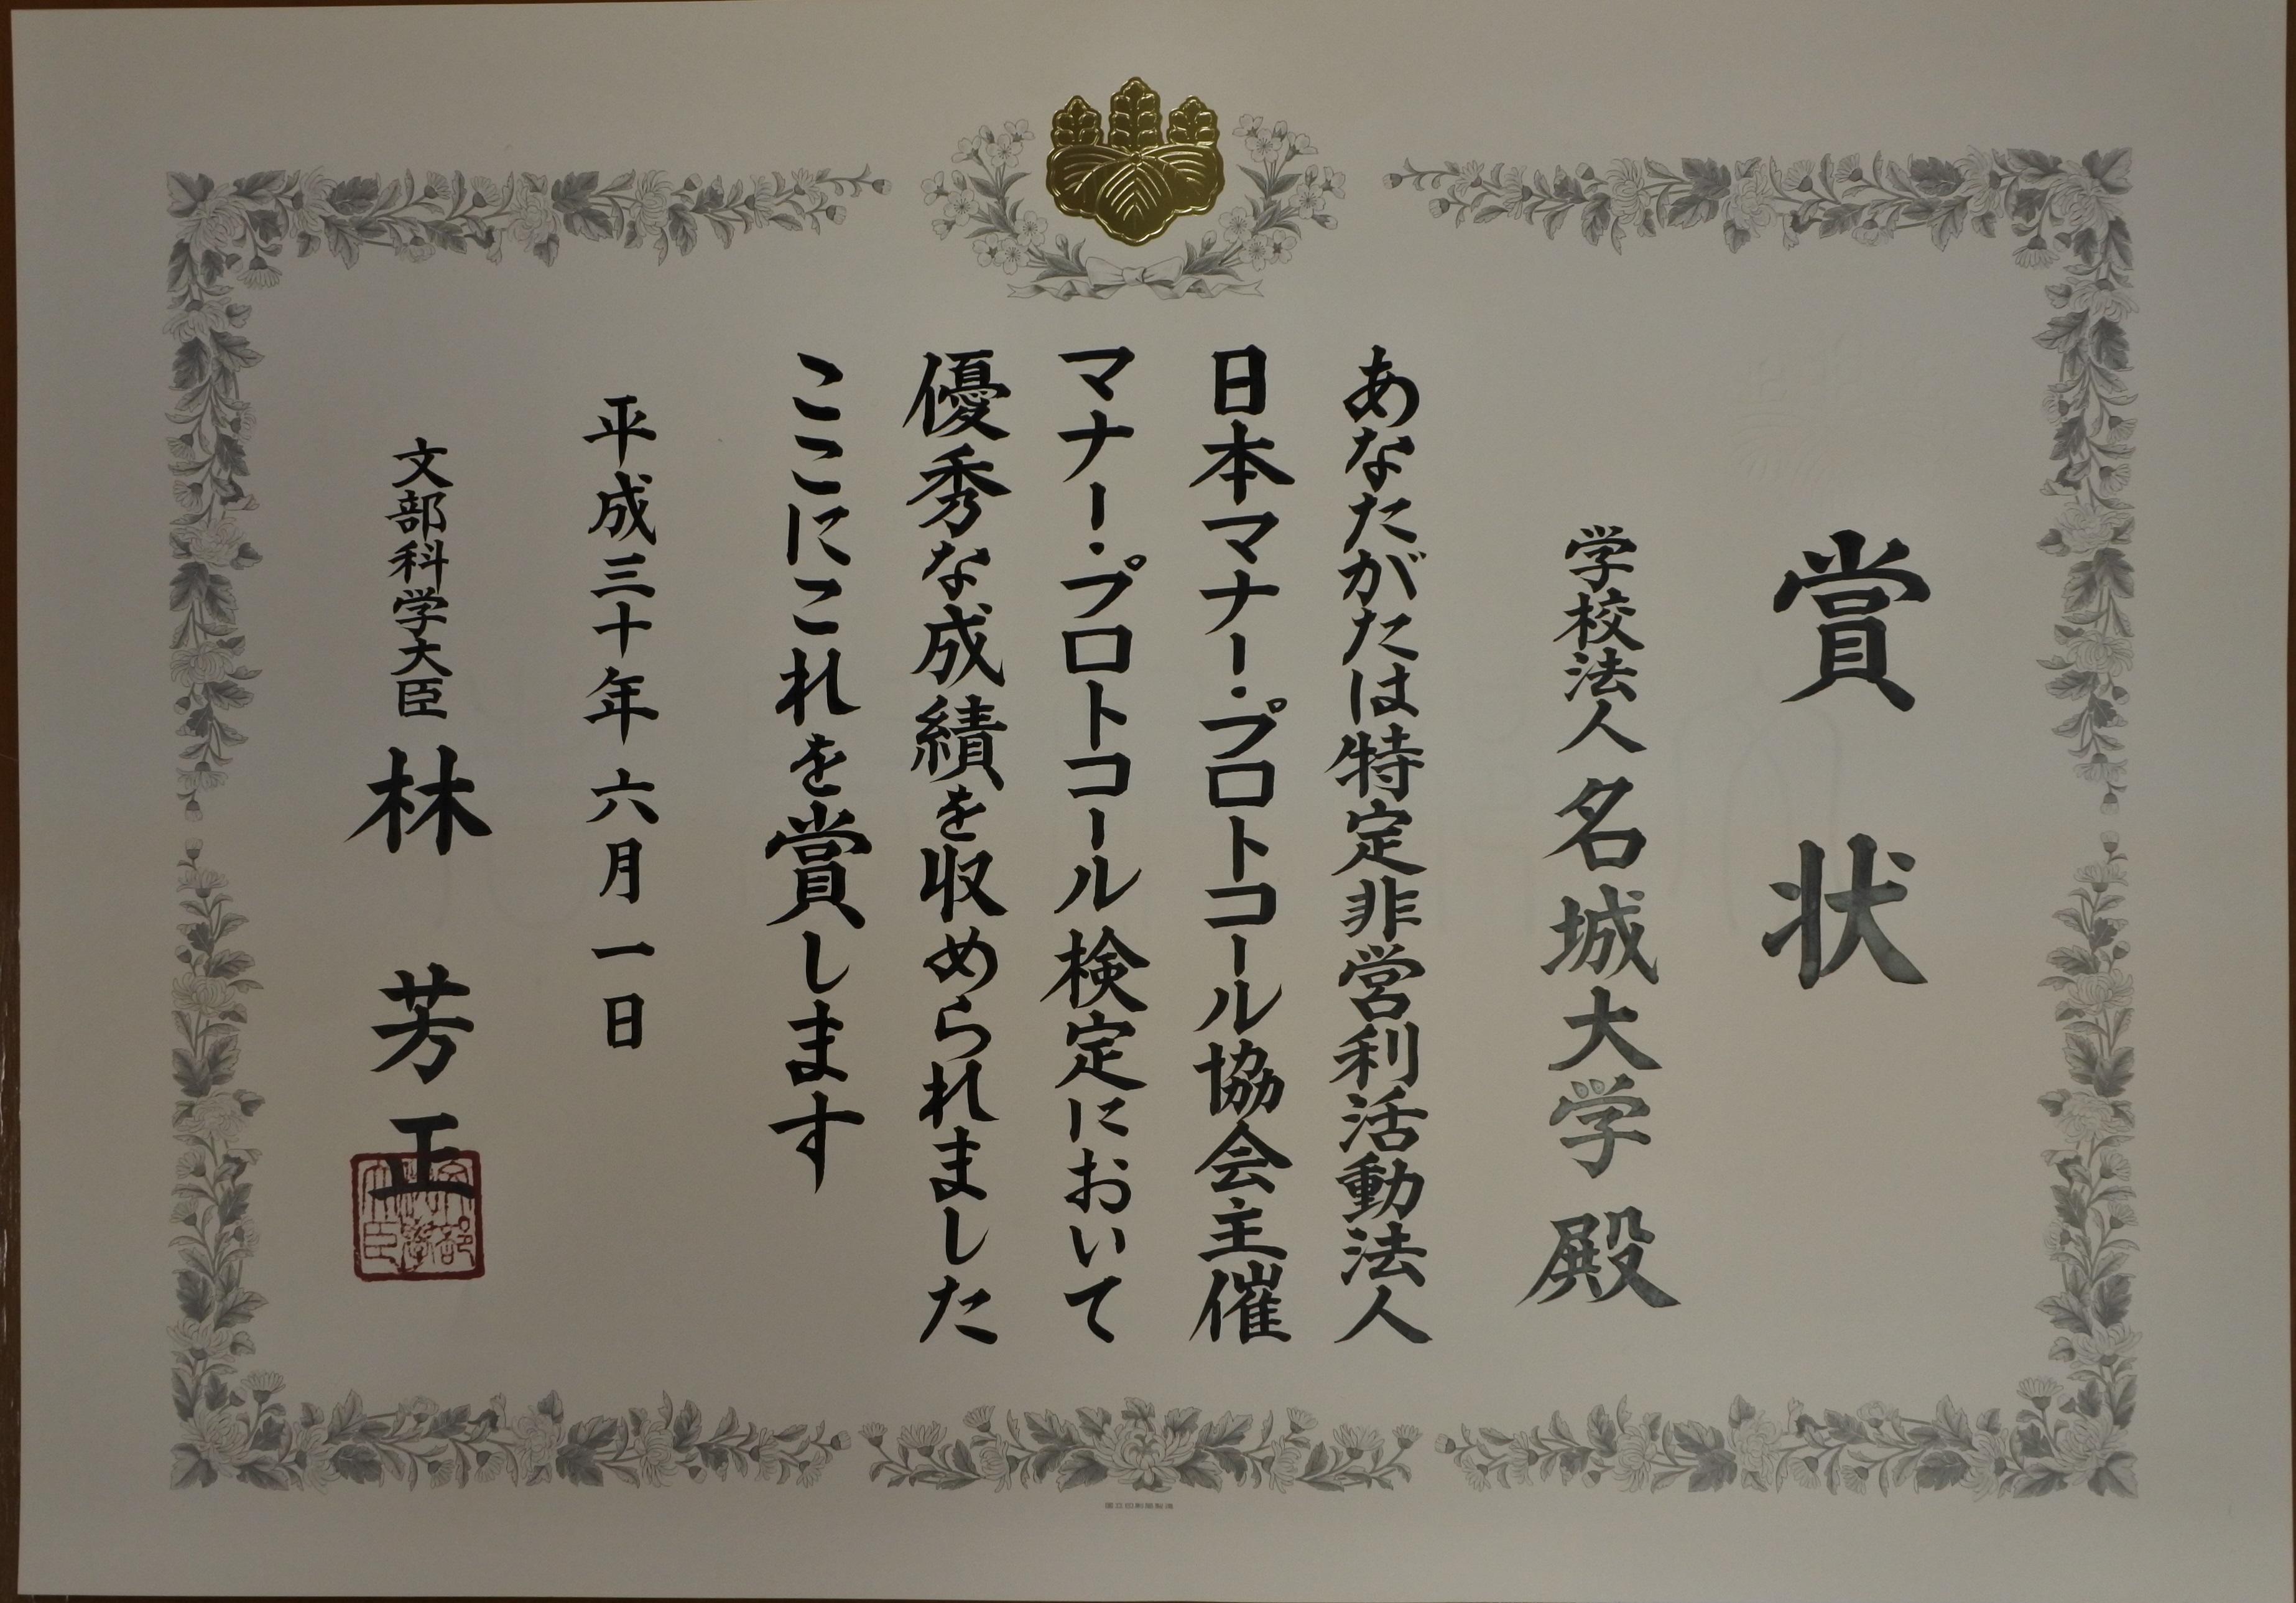 賞状
学校法人 名城大学 殿
あなたがたは特定非営利活動法人
日本マナー・プロトコール協会主催
マナー・プロトコール検定において
優秀な成績を収められました
ここにこれを賞します
平成三十年 六月一日
文部科学大臣 林 芳正
文部科学大臣
国立印刷局製造